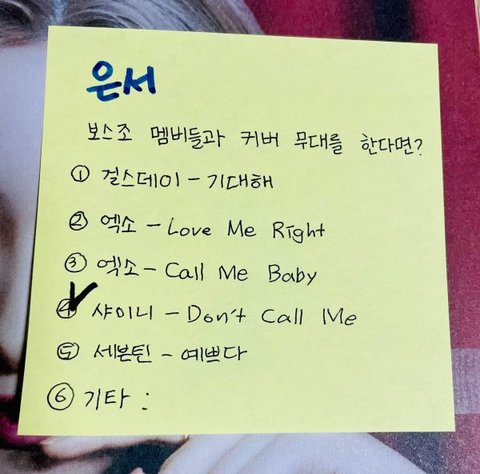 은서
보스조 멤버들과 커버 무대를 한다면?
① 걸스데이 - 기대해
② 엑소 - Love Me Right
③ 엑소 - Call Me Baby
④ 샤이니 - Don't Call Me
⑤ 세븐틴 - 예쁘다
⑥ 기타 :